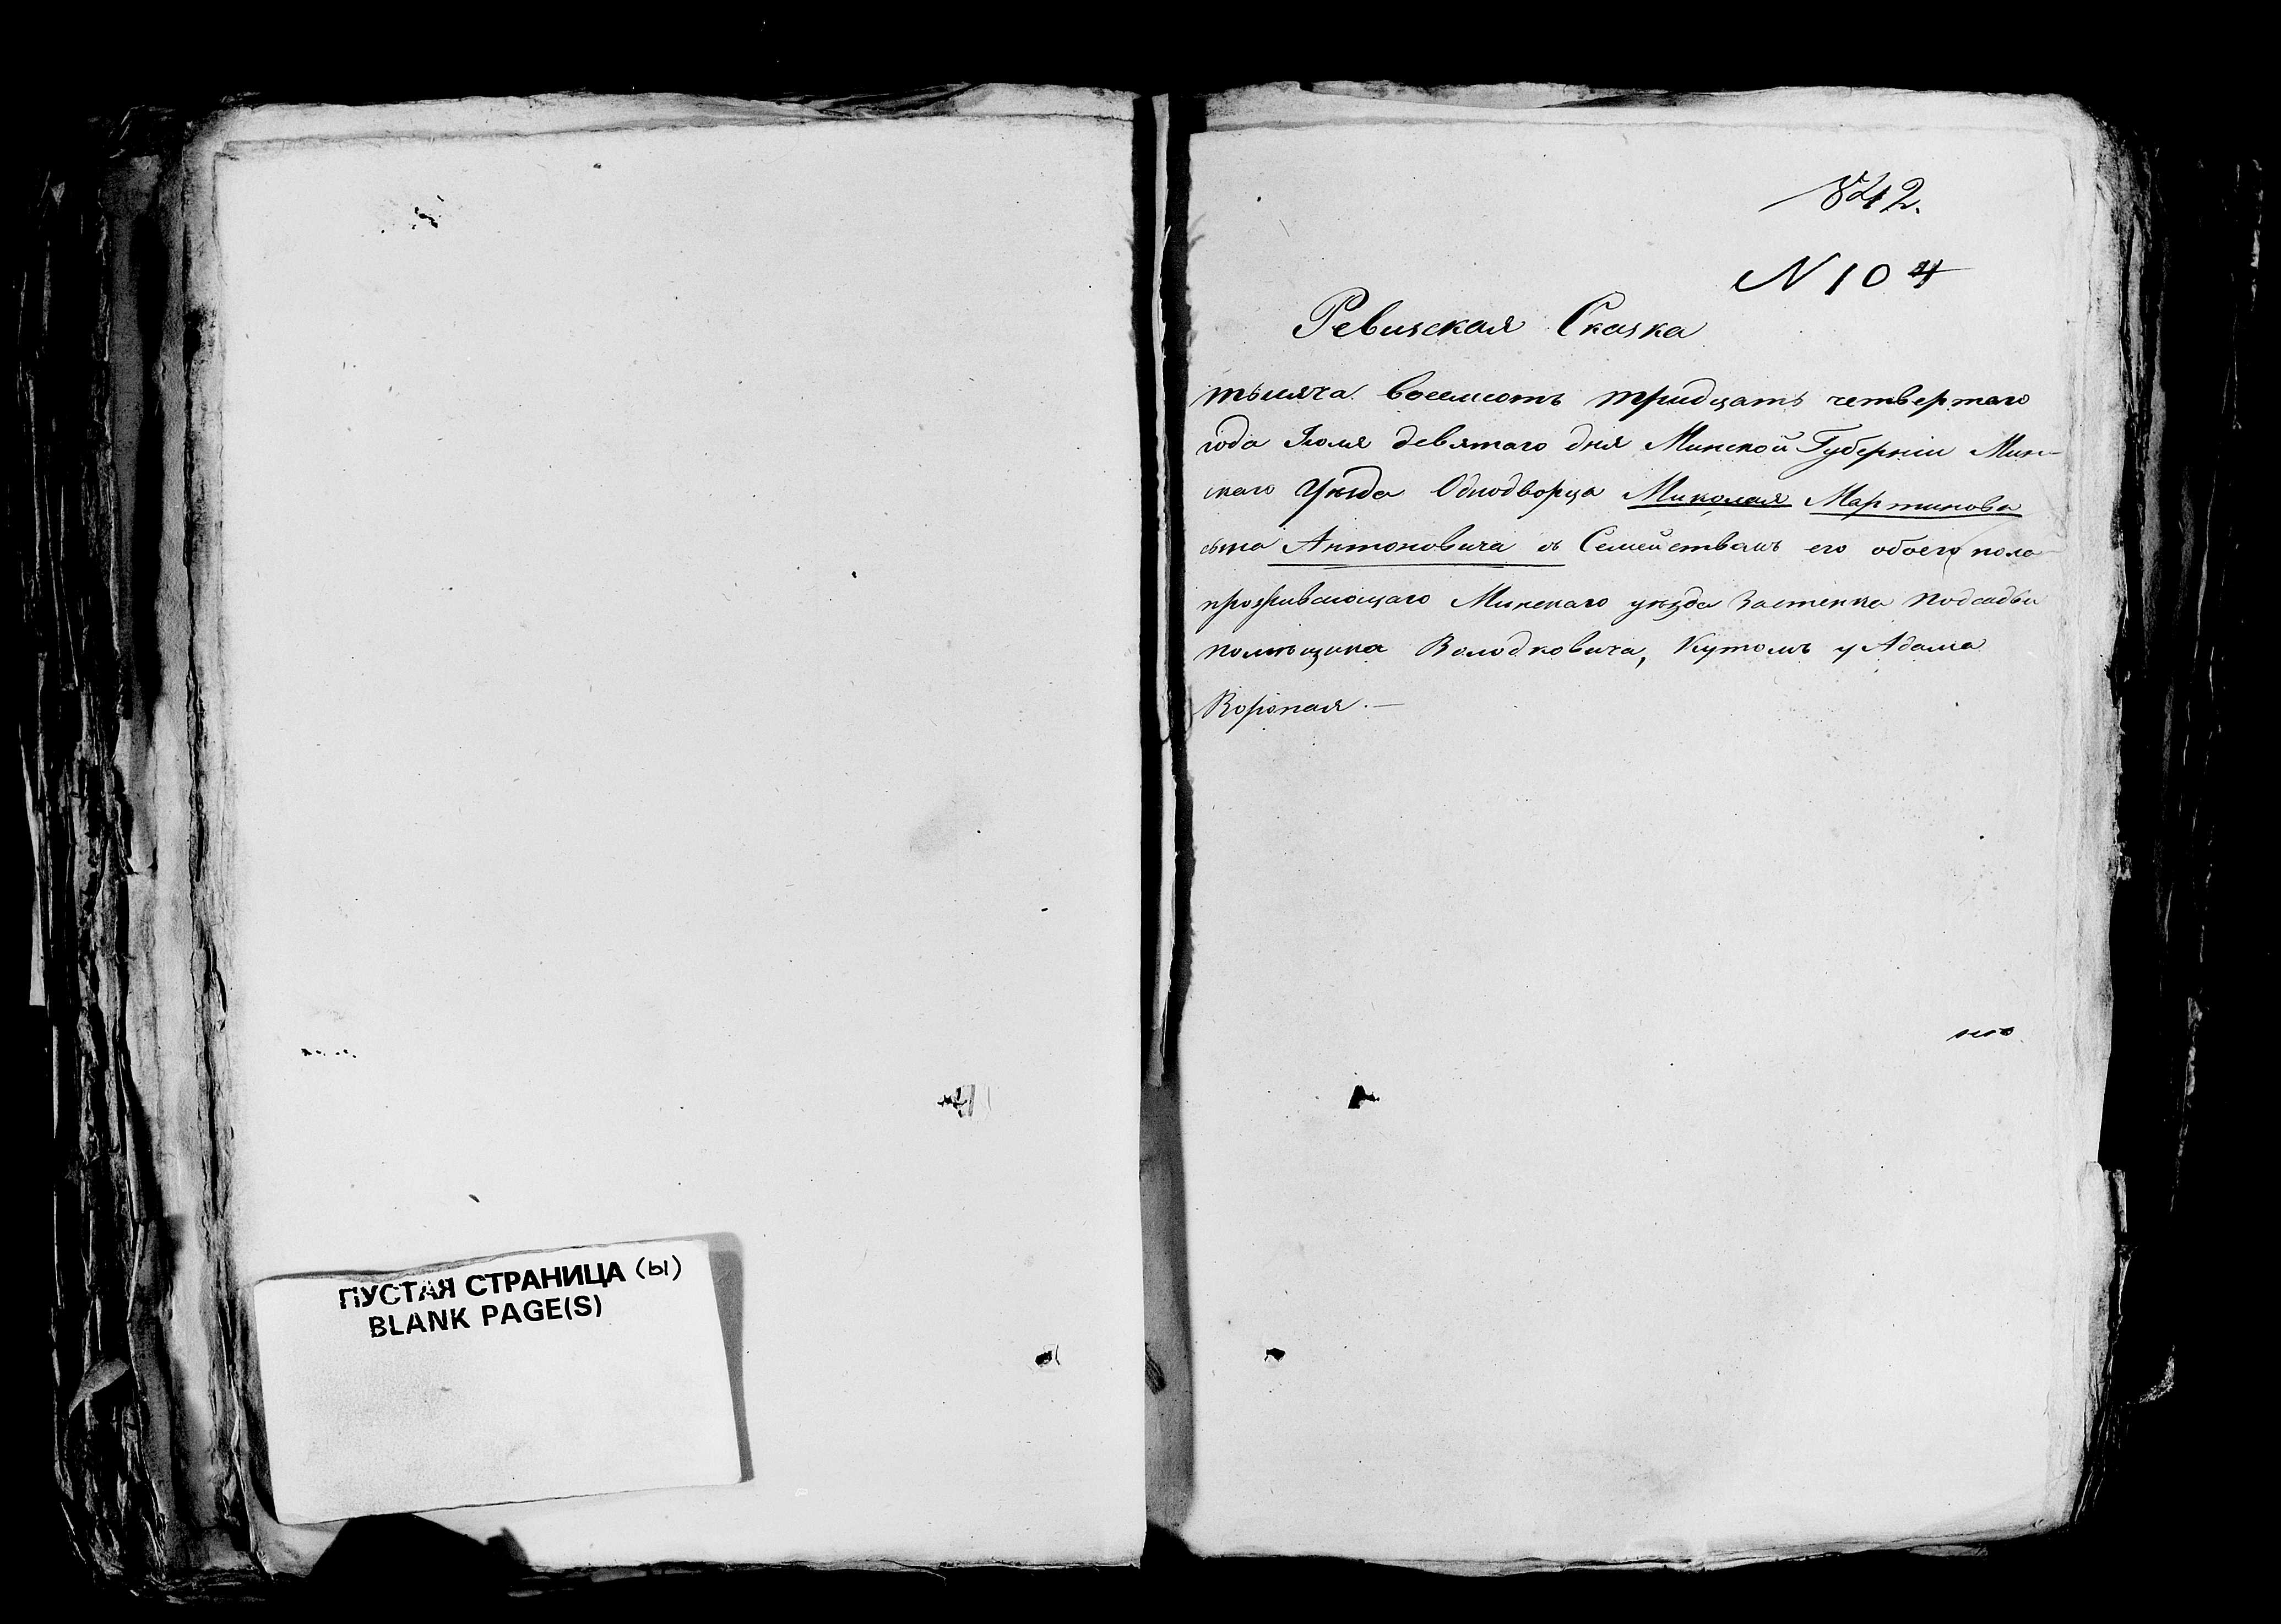 ПУСТАЯ СТРАНИЦА (ы)
BLANK PAGE(S)
842.
N 104
Ревизская Сказка
тысяча восемсотъ тридцать четвертаго
года Іюля девятаго дня Минской Губерніи Мин-
скаго Уѣзда Однодворца Миколая Мартинова
сына Антоновича съ Семействамъ его обоего пола
проживающаго Минскаго уѣзда Застенка Подсадьи
помѣщика Володковича, Кутомъ у Адама
Воропая.—